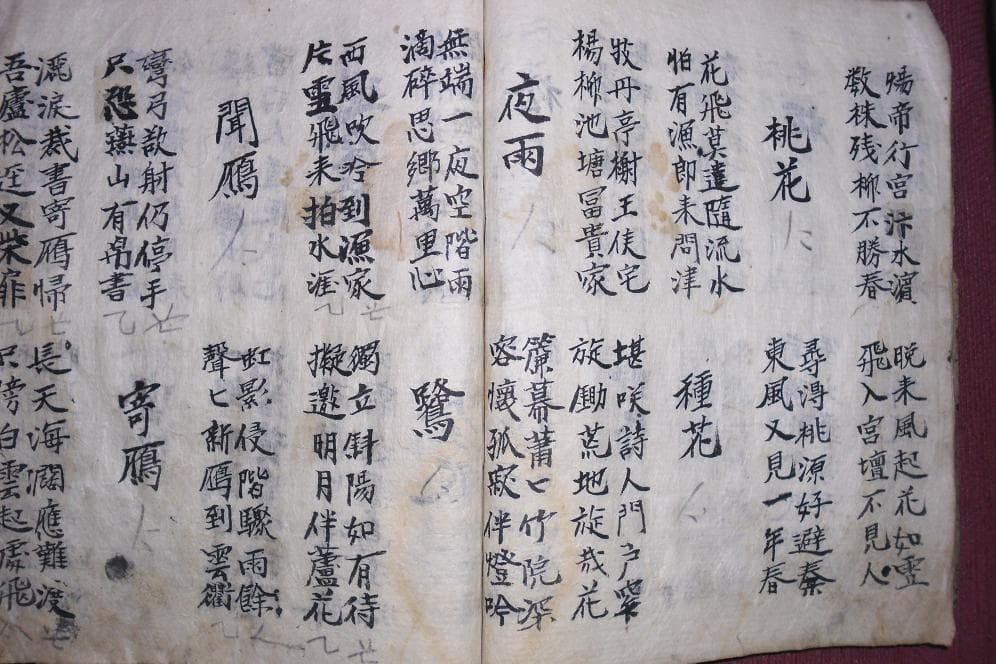 煬帝行宮汴水濵
数株残柳不勝春
晚来風起花如雪
飛入宮壇不見人
桃花
尋淂桃源好避秦
東風又見一年春
花飛莫遣隨流水
怕有漁郎来問津
種花
牧丹亭榭王侯宅
楊柳池塘冨貴家
堪咲詩人門户窄
旋勸荒地旋栽花
夜雨
簾幕蕭匕竹院深
客懷孤寂伴燈吟
無端一夜空階雨
滴碎思鄉萬里心
鷺
西風吹冷到漁家
片雪飛来拍水涯
獨立斜陽如有待
擬邀明月伴蘆花
聞鴈
虹影侵階驟雨餘
聲匕新鴈到雲衢
彎弓欲射仍停手
只恐山有帛書
寄鴈
灑淚裁書寄鴈帰
吾廬松逕又柴扉
長天海濶應難渡
只傍白雲起處飛